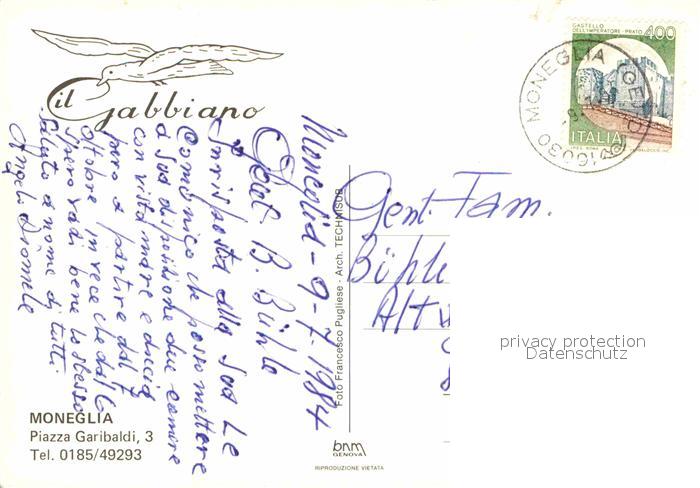 il Gabbiano
Moneglia - 9-7-1984
Gent. B. Bühle
In risposta alla Sua Le
Comunico che posso mettere
a Sua disposizione due camere
con vista mare e doccia
però a partire dal 7
Ottobre invece che dal 6
Spero vadi bene lo stesso
Saluto a nome di tutti
Angelo
MONEGLIA
Piazza Garibaldi, 3
Tel. 0185/49293
Foto Francesco Pugliese - Arch. TECHNISUB
bnm
GENOVA
RIPRODUZIONE VIETATA
CASTELLO
DELL'IMPERATORE - PRATO 400
ITALIA
16030 MONEGLIA (GE)
Gent. Fam.
Bühle
Alt
privacy protection
Datenschutz